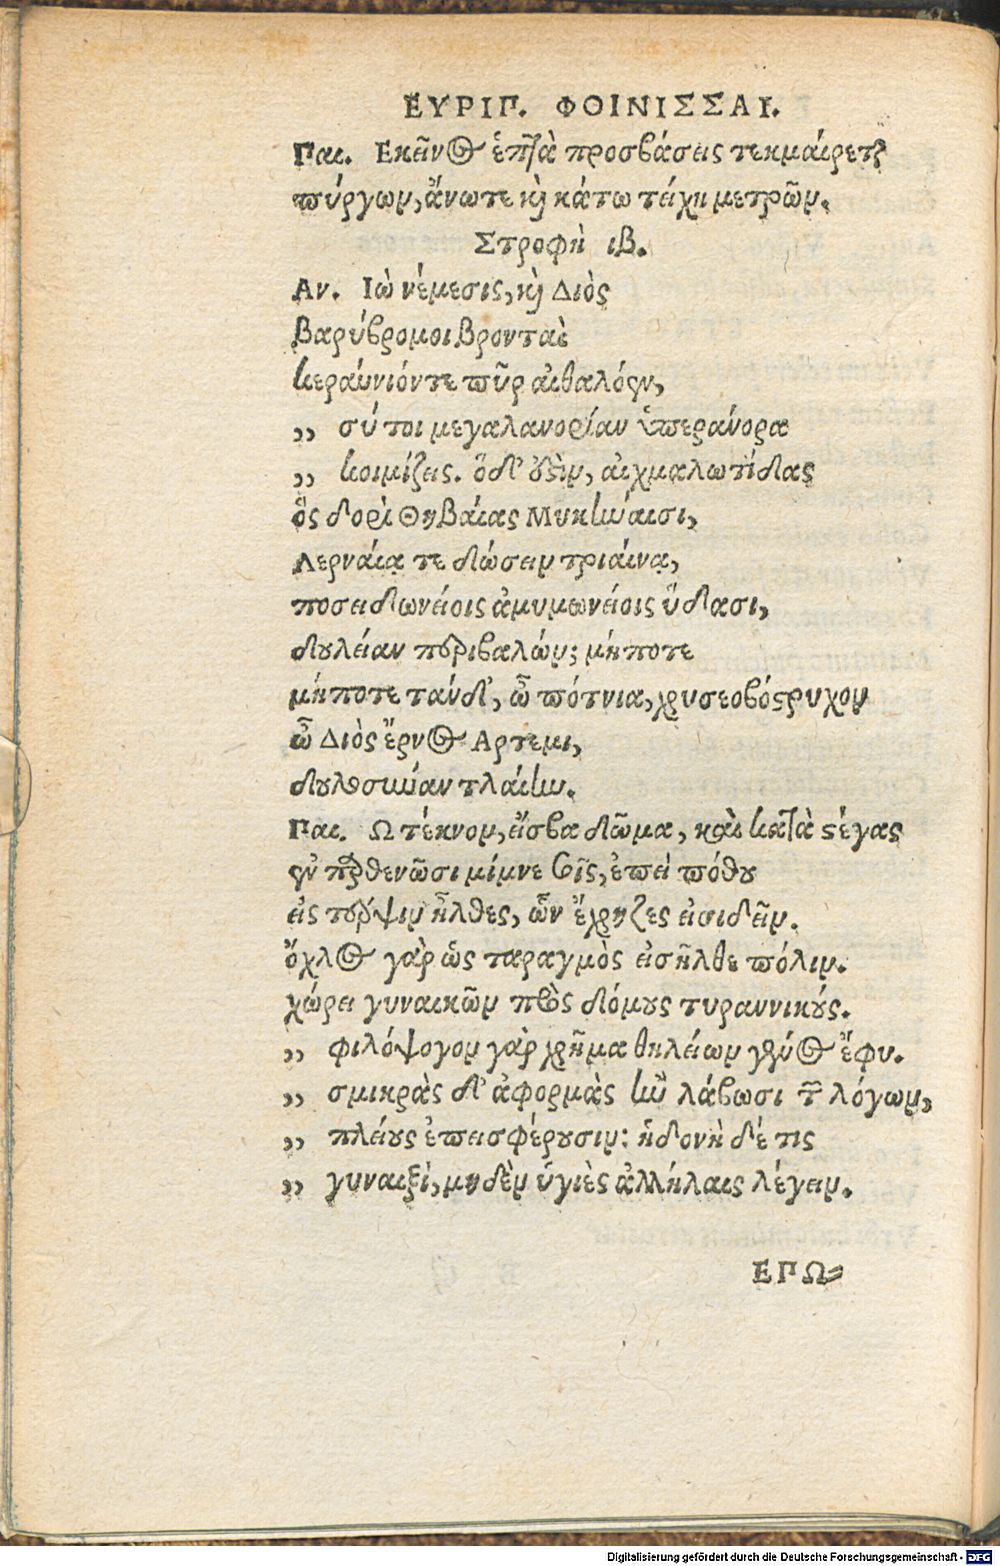 ΕΥΡΙΠ. ΦΟΙΝΙΣΣΑΙ.
Παι. Εκεῖνος ἑπτὰ προσβάσεις τεκμαίρεται
πύργων, ἄνωτε καὶ κάτω τείχη μετρῶν.
Στροφὴ ιβ.
Αν. Ιὼ νέμεσις, καὶ Διὸς
βαρύβρομοι βρονταὶ
κεραύνιόντε πῦρ αἰθαλόεν,
„ σύ τοι μεγαλανορίαν ὑπεράνορα
„ κοιμίζεις. ὅδ' ἐςὶν, αἰχμαλωτίδας
ὃς δορὶ Θηβαίας Μυκήναισι,
Λερναίᾳ τε δώσειν τριαίνᾳ,
ποσειδωνείοις ἀμυμωνείοις ὕδασι,
δουλείαν περιβαλών; μήποτε
μήποτε τάνδ', ὦ πότνια, χρυσεοβόςρυχον
ὦ Διὸς ἔρνος Αρτεμι,
δουλοσύναν τλαίην.
Παι. Ω τέκνον, εἴσβα δῶμα, καὶ κατὰ ςέγας
ἐν παρθενῶσι μίμνε σοῖς, ἐπεὶ πόθου
εἰς τέρψιν ἦλθες, ὧν ἔχρηζες εἰσιδεῖν.
ὄχλος γὰρ ὡς ταραγμὸς εἰσῆλθε πόλιν.
χώρει γυναικῶν πρὸς δόμους τυραννικούς.
„ φιλόψογον γὰρ χρῆμα θηλείων γένος ἔφυ.
„ σμικρὰς δ' ἀφορμὰς ἢν λάβωσι τῶν λόγων,
„ πλείους ἐπεισφέρουσιν: ἡδονὴ δέ τις
„ γυναιξὶ, μηδὲν ὑγιὲς ἀλλήλαις λέγειν.
ΕΠΩ-
Digitalisierung gefördert durch die Deutsche Forschungsgemeinschaft - DFG